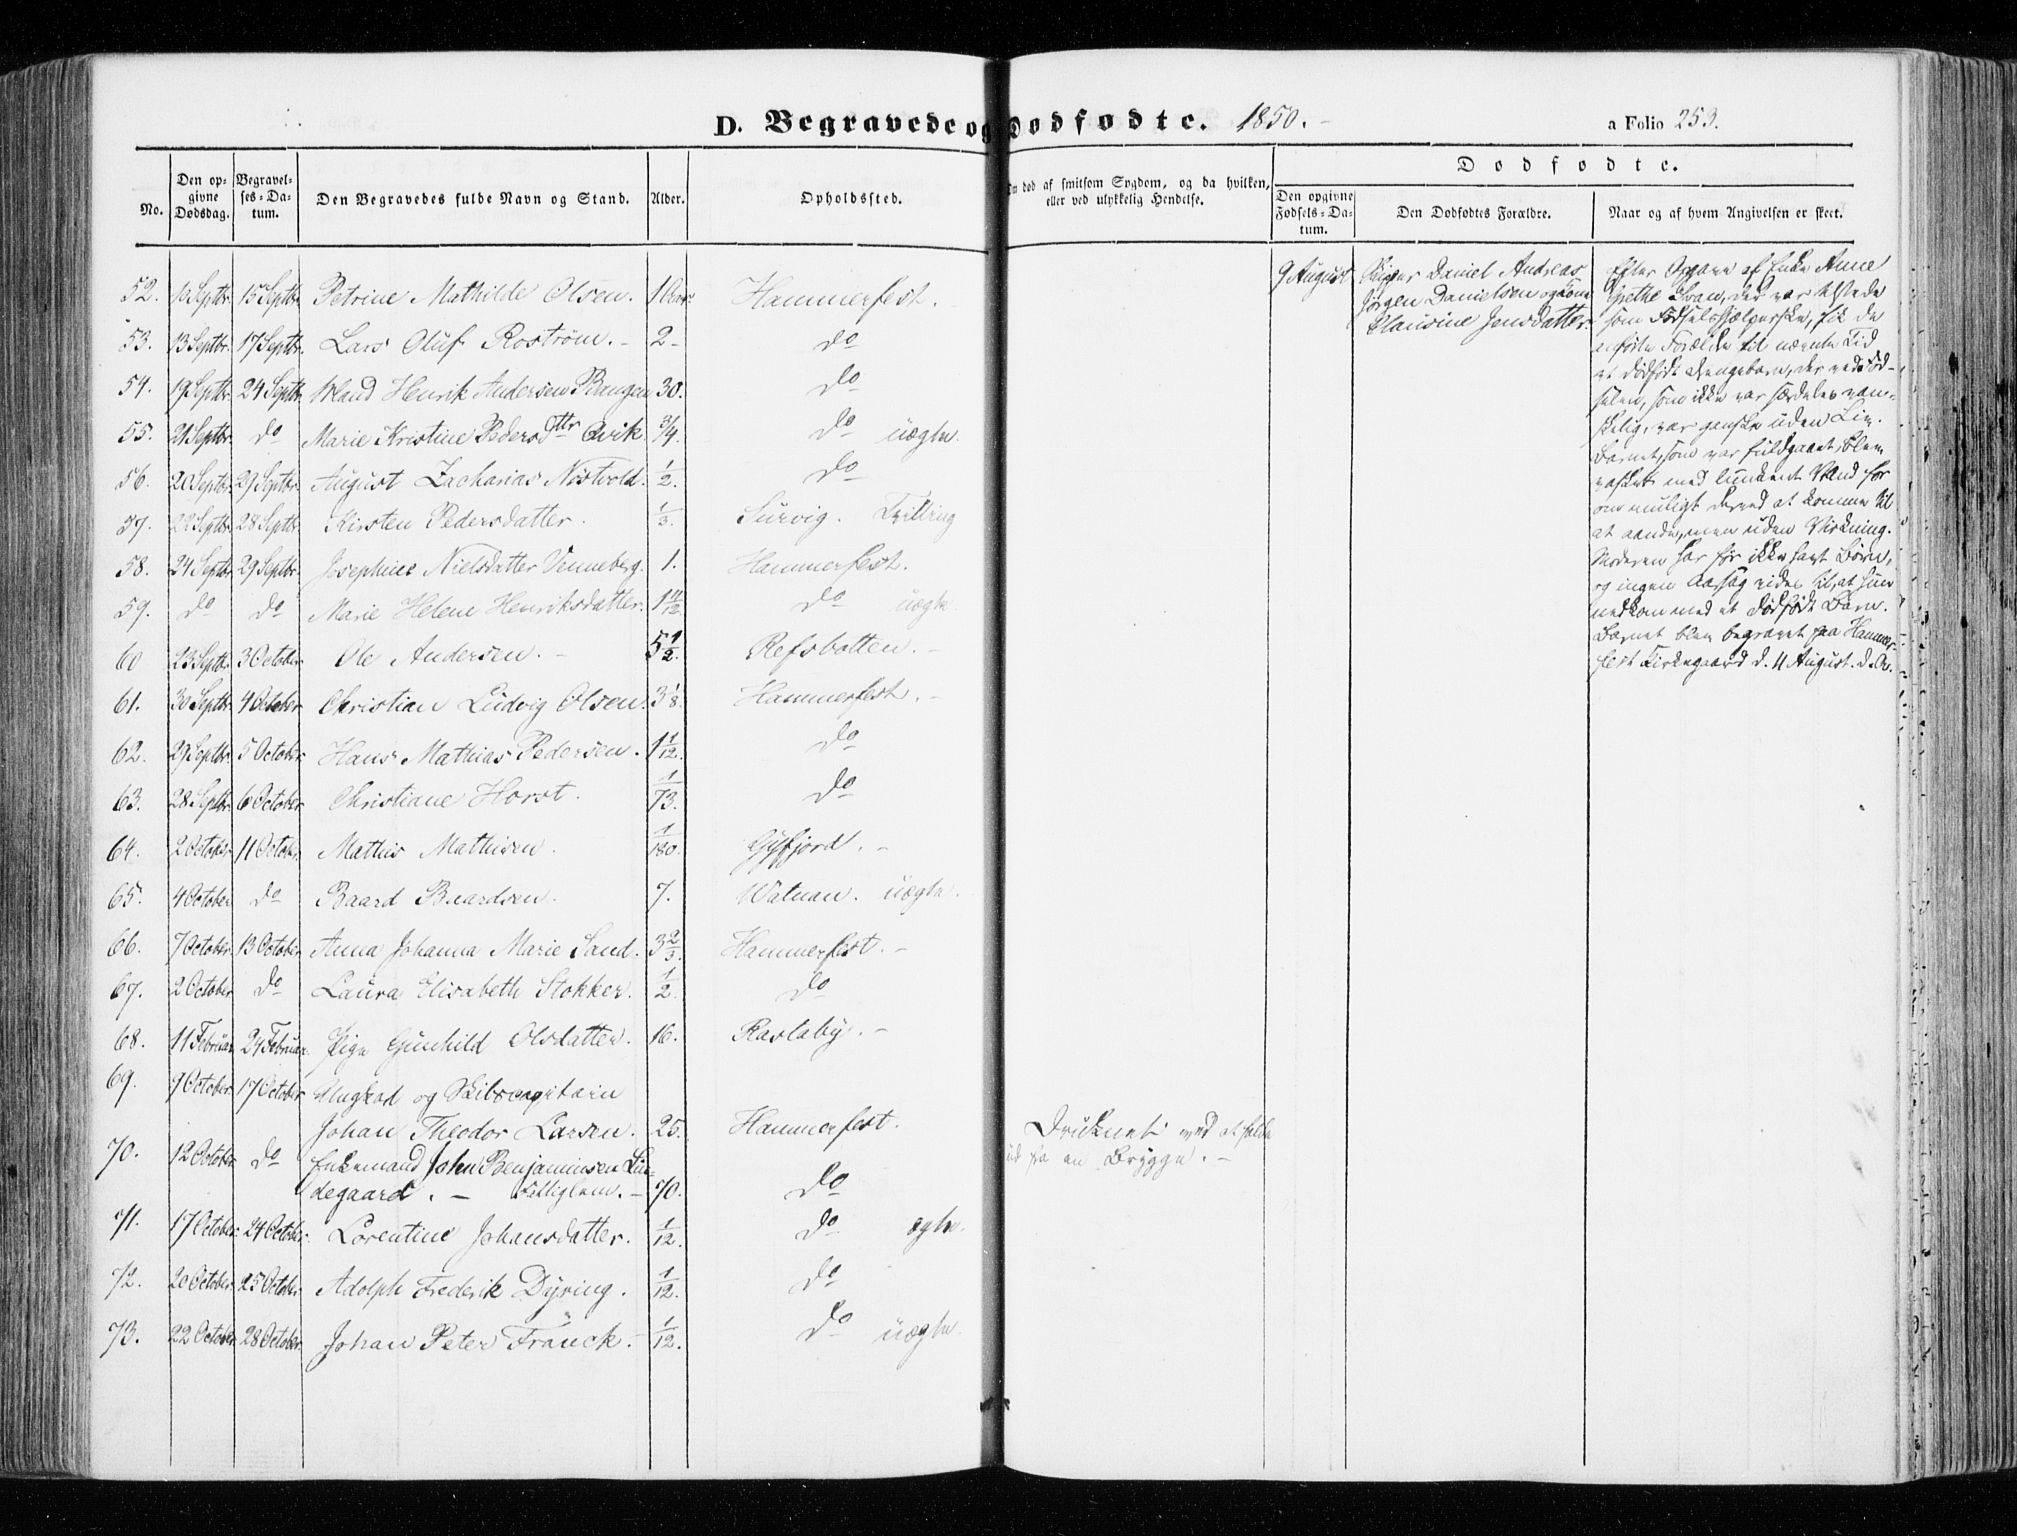 D. Begravede og Dødfødte. 1850.
a Folio 253.
No.
Den opgivne Dødsdag.
Begravelses-Datum.
Den Begravedes fulde Navn og Stand.
Alder.
Opholdssted.
Om død af smitsom Sygdom, og da hvilken, eller ved ulykkelig Hendelse.
Dødfødte.
Den opgivne Fødsels-Datum.
Den Dødfødtes Forældre.
Naar og af hvem Angivelsen er skeet.
52. 10 Septbr. 15 Septbr. Petrine Mathilde Olsen. 1 Aar. Hammerfest.
53. 13 Septbr. 17 Septbr. Lars Oluf Roström. 2 do
54. 19 Septbr. 24 Septbr. Mand Henrik Andersen Bangen 30. do
55. 21 Septbr. do Marie Kristine Pedersdttr Qvik. 3/4 do uægte.
56. 20 Septbr. 29 Septbr. August Zacharias Nöstvold. 1/2. do
57. 22 Septbr. 28 Septbr. Kirsten Pedersdatter. 1/3. Survig. Tvilling
58. 24 Septbr. 29 Septbr. Josephine Nielsdatter Venneberg. 1. Hammerfest.
59. do do Marie Helene Henriksdatter. 1 11/12 do uægte.
60 23 Septb. 3 October Ole Andersen. 5 1/2. Refsbotten.
61. 30 Septbr. 4 October Christian Ludvig Olsen. 3 1/8. Hammerfest.
62. 29 Septbr. 5 October Hans Mathias Pedersen. 1 1/12. do
63. 28 Septbr. 6 October Christiane Horst. 1/73. do
64. 2 October 11 October Mathis Mathisen. 1/180. fjord.
65. 4 October do Baard Baardsen. 7. Watnan. uægte.
66. 7 October. 13 October Anna Johanna Marie Sand. 3 2/3. Hammerfest.
67. 2 October do Laura Elisabeth Stokker. 1/2. do
68. 11 Februar 24 Februar. Pige Gunhild Olsdatter. 16. Rastaby.
69. 9 October. 17 October Ungkad og Skibscapitain
Johan Theodor Larsen. 25. Hammerfest. Druknet ved at falde
ud fra en Brygge.
70. 12 October do Enkemand John Benjaminsen Lin-
degaard. Fattiglem. 70. do
71. 17 October. 24 October. Lorentine Johansdatter. 1/12. do ægte.
72. 20 October. 25 October Adolph Frederik Dyring. 1/12. do
73. 22 October 28 October. Johan Peter Franck. 1/12. do uægte.
9 August
Daniel Andreas
Jørgen Danielsen og Kone
Clausine Jensdatter.
Efter Opgave af Enke Anne
Grethe Svan, der var tilstede
som Fødselshjelperske, fik de
anførte Forældre til nævnte Tid
et dødfødt Drengebarn, der ved Fød-
selen, som ikke var særdeles van-
skelig, var ganske uden Liv.
Barnet, som var fuldgaaet, blev
vasket med lunkent Vand for
om muligt derved at komme til
at aande, men uden Virkning.
Moderen har før ikke havt Børn,
og ingen Aarsag vides til, at hun
nedkom med et dødfødt Barn.
Barnet blev begravet paa Hammer-
fest Kirkegaard d. 11 August. d. A.